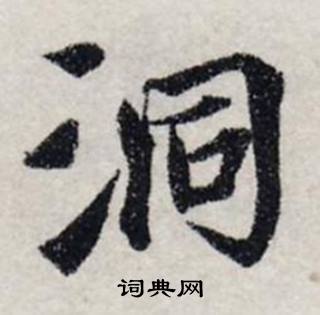 洞
词典网